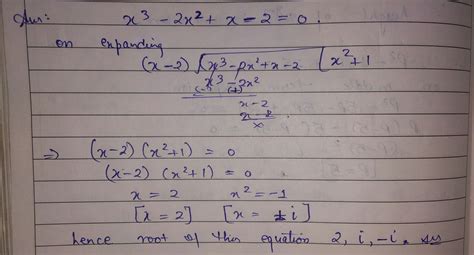 Ans: x³ - 2x² + x - 2 = 0.
on expanding
(x-2) √x³-2x²+x-2 [ x²+1
x³ - 2x²
(-) (+)
x-2
x-2
x
⇒ (x-2) (x²+1) = 0
(x-2) (x²+1) = 0
x = 2 x² = -1
[x = 2] [x = ±i]
hence root of this equation 2, i, -i. Ans